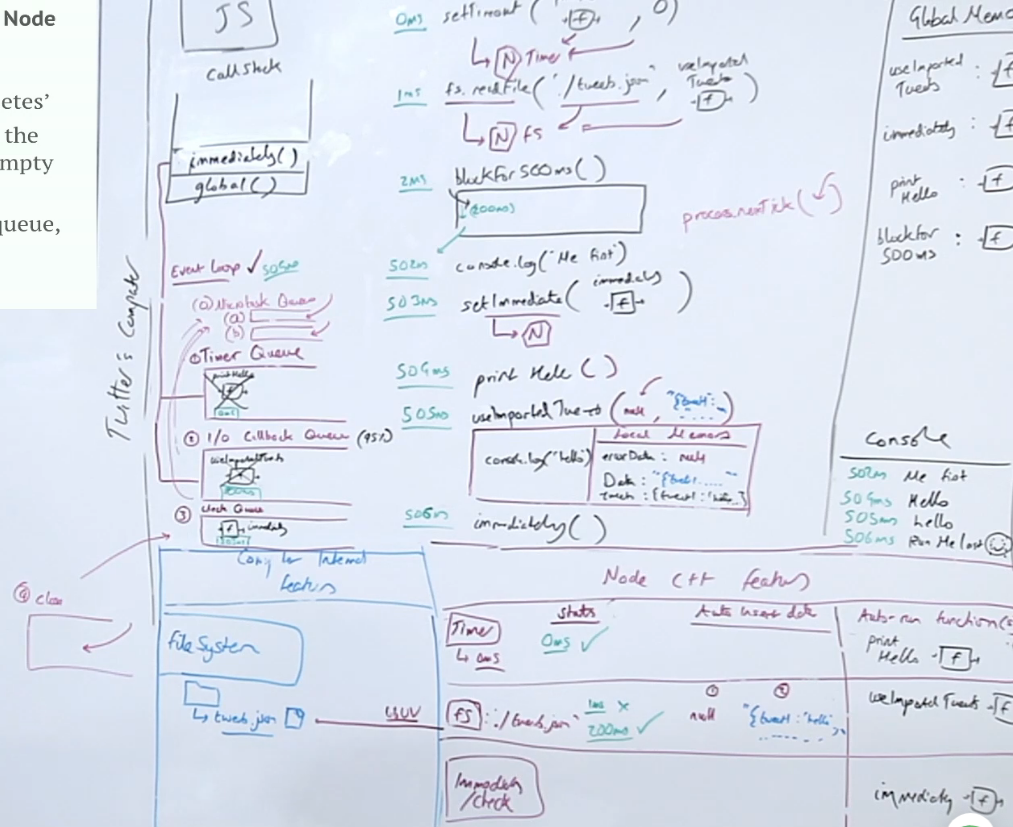 Node
etes'
the
mpty
queue,
JS
Call Stack
immediately()
global()
Twitter's Computer
Event Loop ✓ 505ms
(0) Microtask Queue
(a)
(b)
① Timer Queue
printHello
f
0ms
② I/O Callback Queue (95%)
useImportedTweets
200ms
③ Check Queue
f immediately
503ms
④ Close
0ms setTimeout( f , 0)
N Timer
1ms fs.readFile("./tweets.json", useImported Tweets f )
N fs
2ms blockFor500ms()
(200ms)
process.nextTick( )
502ms console.log("Me first")
503ms setImmediate( immediately f )
N
504ms printHello()
505ms useImportedTweets(null, "{tweet: .....")
console.log("hello")
Local Memory
errorData : null
Data : "{tweet: ..... "
tweets : {tweet1: 'hello'}
506ms immediately()
Global Memo
useImported Tweets : f
immediately : f
print Hello : f
blockFor 500ms : f
Console
502ms Me first
504ms Hello
505ms hello
506ms Run Me last
Computer Internal Features
File System
tweets.json
LIBUV
Node C++ features
Status
Auto insert data
Auto-run function(s
Timer
0ms
0ms ✓
print Hello f
fs : "./tweets.json"
1ms ×
200ms ✓
① null
② "{tweet: 'hello'
useImported Tweets f
Immediately /check
immediately f